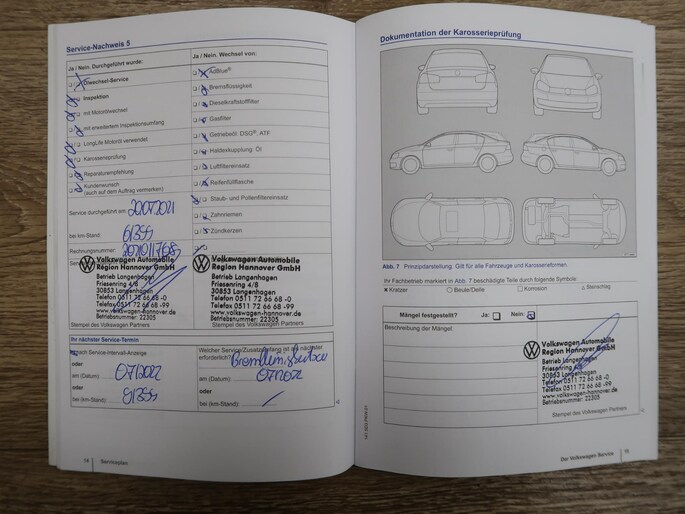 Service-Nachweis 5
Ja / Nein. Durchgeführt wurde:
Ölwechsel-Service
Inspektion
mit Motorölwechsel
mit erweitertem Inspektionsumfang
LongLife Motoröl verwendet
Karosserieprüfung
Reparaturempfang
Kundenwunsch
(auch auf dem Auftrag vermerken)
Service durchgeführt am 22072021
bei km-Stand: 61355
Rechnungsnummer:
Ja / Nein. Wechsel von:
AdBlue®
Bremsflüssigkeit
Dieselkraftstofffilter
Gasfilter
Getriebeöl: DSG®, ATF
Haldexkupplung: Öl
Luftfiltereinsatz
Reifenfüllflasche
Staub- und Pollenfiltereinsatz
Zahnriemen
Zündkerzen
Volkswagen Automobile
Region Hannover GmbH
Betrieb Langenhagen
Friesenring 4/8
30853 Langenhagen
Telefon 0511 72 66 68 -0
Telefax 0511 72 66 68 -99
www.volkswagen-hannover.de
Betriebsnummer: 22305
Stempel des Volkswagen Partners
Volkswagen Automobile
Region Hannover GmbH
Betrieb Langenhagen
Friesenring 4/8
30853 Langenhagen
Telefon 0511 72 66 68 -0
Telefax 0511 72 66 68 -99
www.volkswagen-hannover.de
Betriebsnummer: 22305
Stempel des Volkswagen Partners
Ihr nächster Service-Termin
nach Service-Intervall-Anzeige
oder
am (Datum): 07/2022
oder
bei (km-Stand): 91355
Welcher Service/Zusatzumfang ist als nächster
erforderlich?
am (Datum): 07/2022
oder
bei (km-Stand):
14 Serviceplan
Dokumentation der Karosserieprüfung
Abb. 7 Prinzipdarstellung. Gilt für alle Fahrzeuge und Karosserieformen.
Ihr Fachbetrieb markiert in Abb. 7 beschädigte Teile durch folgende Symbole:
Kratzer Beule/Delle Korrosion Steinschlag
Mängel festgestellt? Ja: Nein:
Beschreibung der Mängel:
Volkswagen Automobile
Region Hannover GmbH
Betrieb Langenhagen
Friesenring
30853 Langenhagen
Telefon 0511 72 66 68 -0
Telefax 0511 72 66 68 -99
www.volkswagen-hannover.de
Betriebsnummer: 22305
Stempel des Volkswagen Partners
Der Volkswagen Service